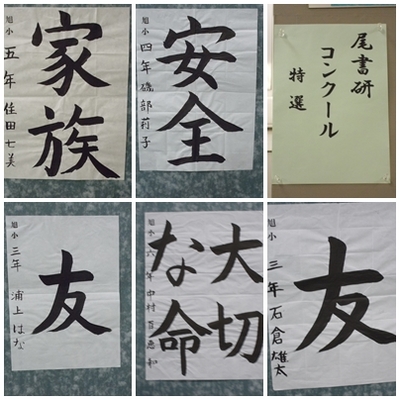 家族
旭小
五年 佳田七美
安全
旭小
四年 磯部莉子
尾書研
コンクール
特選
友
旭小
三年 浦上はな
大切
な命
旭小
六年 中村
友
旭小
三年 石倉雄太